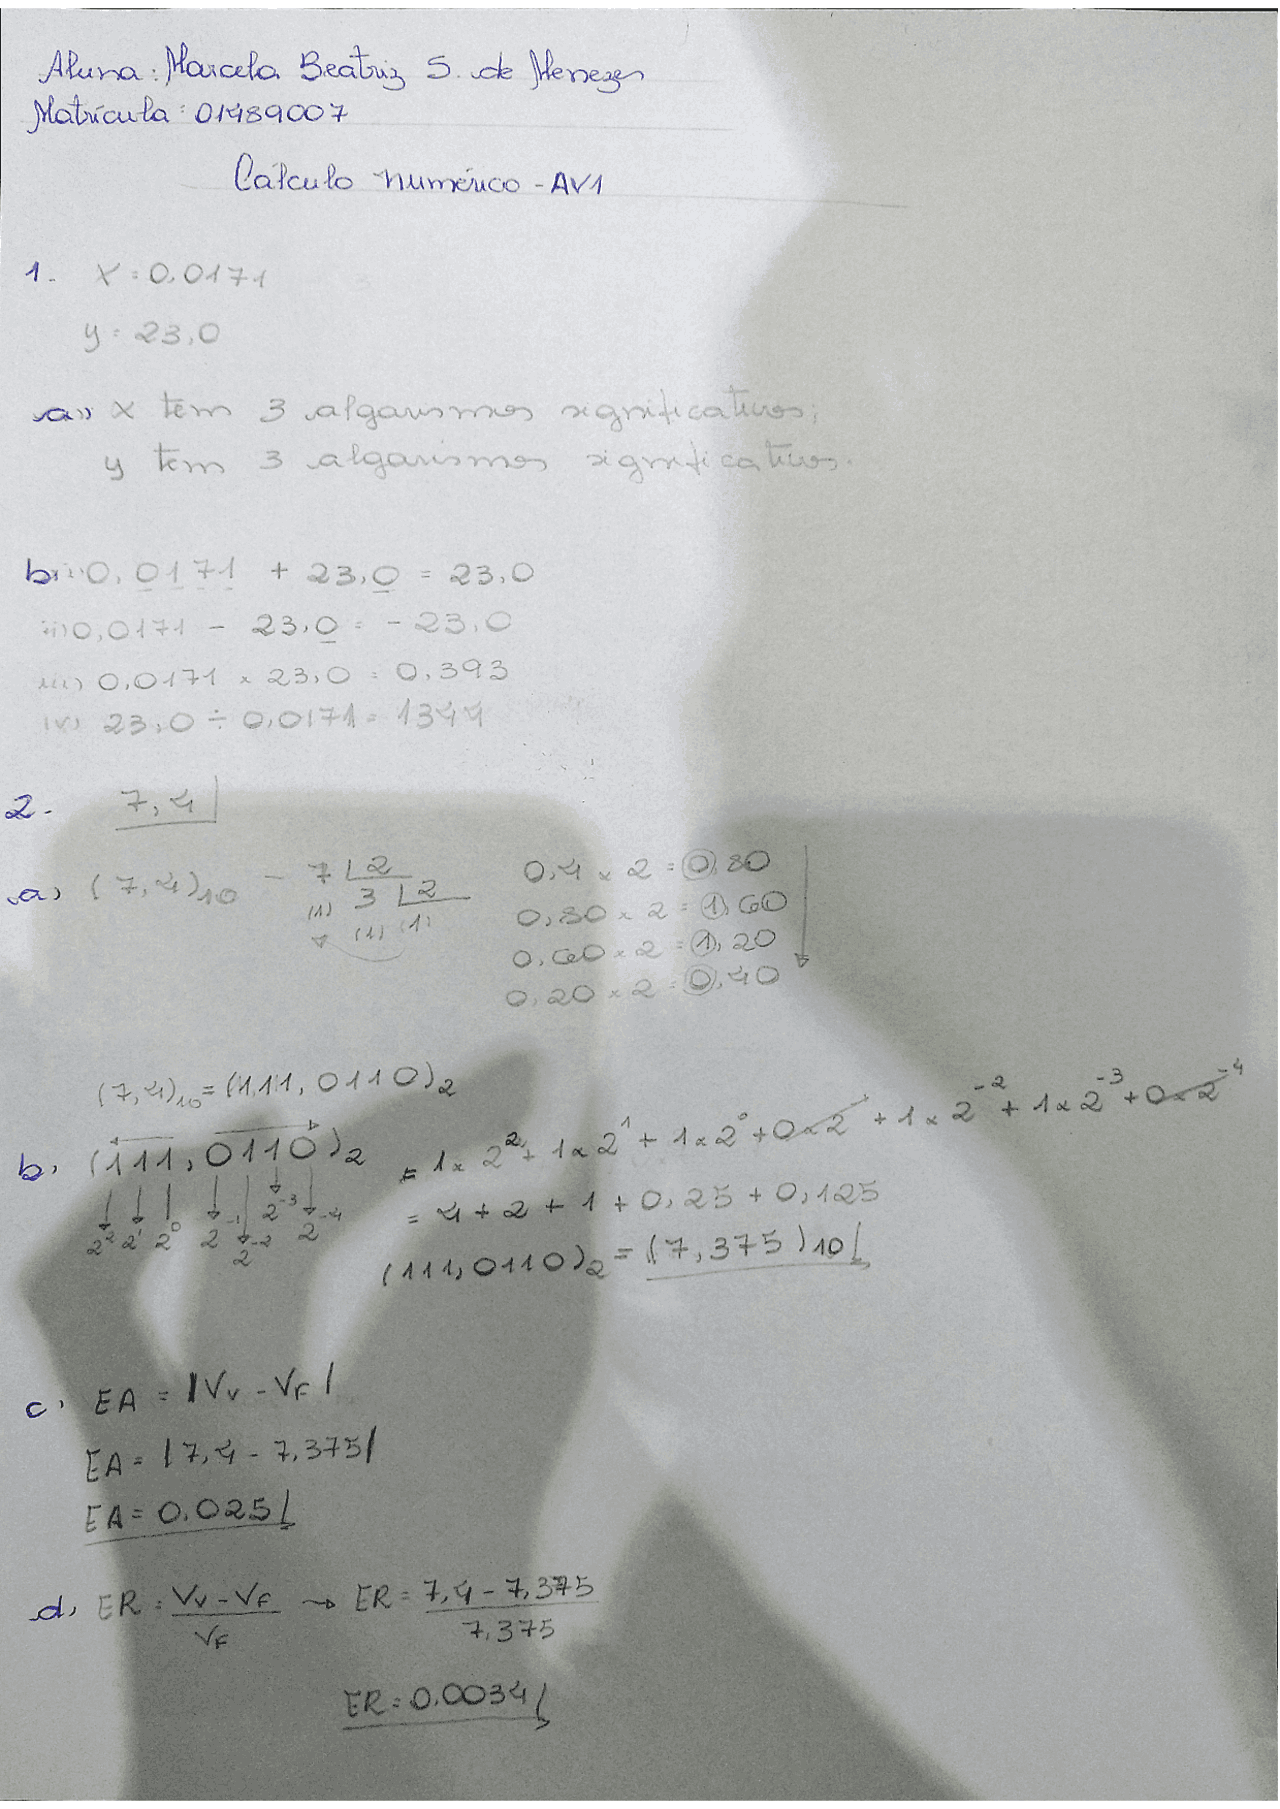 Aluna: Marcela Beatriz S. de Menezes
Matrícula: 01489007
Cálculo numérico - AV1
1. X = 0,0171
y = 23,0
a) x tem 3 algarismos significativos;
y tem 3 algarismos significativos.
b) i) 0,0171 + 23,0 = 23,0
ii) 0,0171 - 23,0 = -23,0
iii) 0,0171 x 23,0 = 0,393
iv) 23,0 ÷ 0,0171 = 1344
2. 7,4
a) (7,4)10 - 7 2 0,4 x 2 = 0,80
(1) 3 2 0,80 x 2 = 1,60
(1) (1) 0,60 x 2 = 1,20
0,20 x 2 = 0,40
(7,4)10 = (111,0110)2
b. (111,0110)2 = 1x2² + 1x2¹ + 1x2⁰ + 0x2⁻¹ + 1x2⁻² + 1x2⁻³ + 0x2⁻⁴
2² 2¹ 2⁰ 2⁻¹ 2⁻² 2⁻³ 2⁻⁴ = 4 + 2 + 1 + 0,25 + 0,125
(111,0110)2 = (7,375)10
c. EA = |Vv - VF|
EA = |7,4 - 7,375|
EA = 0,025
d. ER = Vv - VF / VF → ER = 7,4 - 7,375 / 7,375
ER = 0,0034